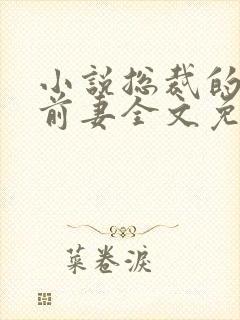 小说总裁的
前妻全文免
菜卷淚